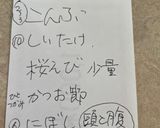 こんぶ
しいたけ
桜えび 少量
ひとつかみ かつお節
にぼし 頭と腹